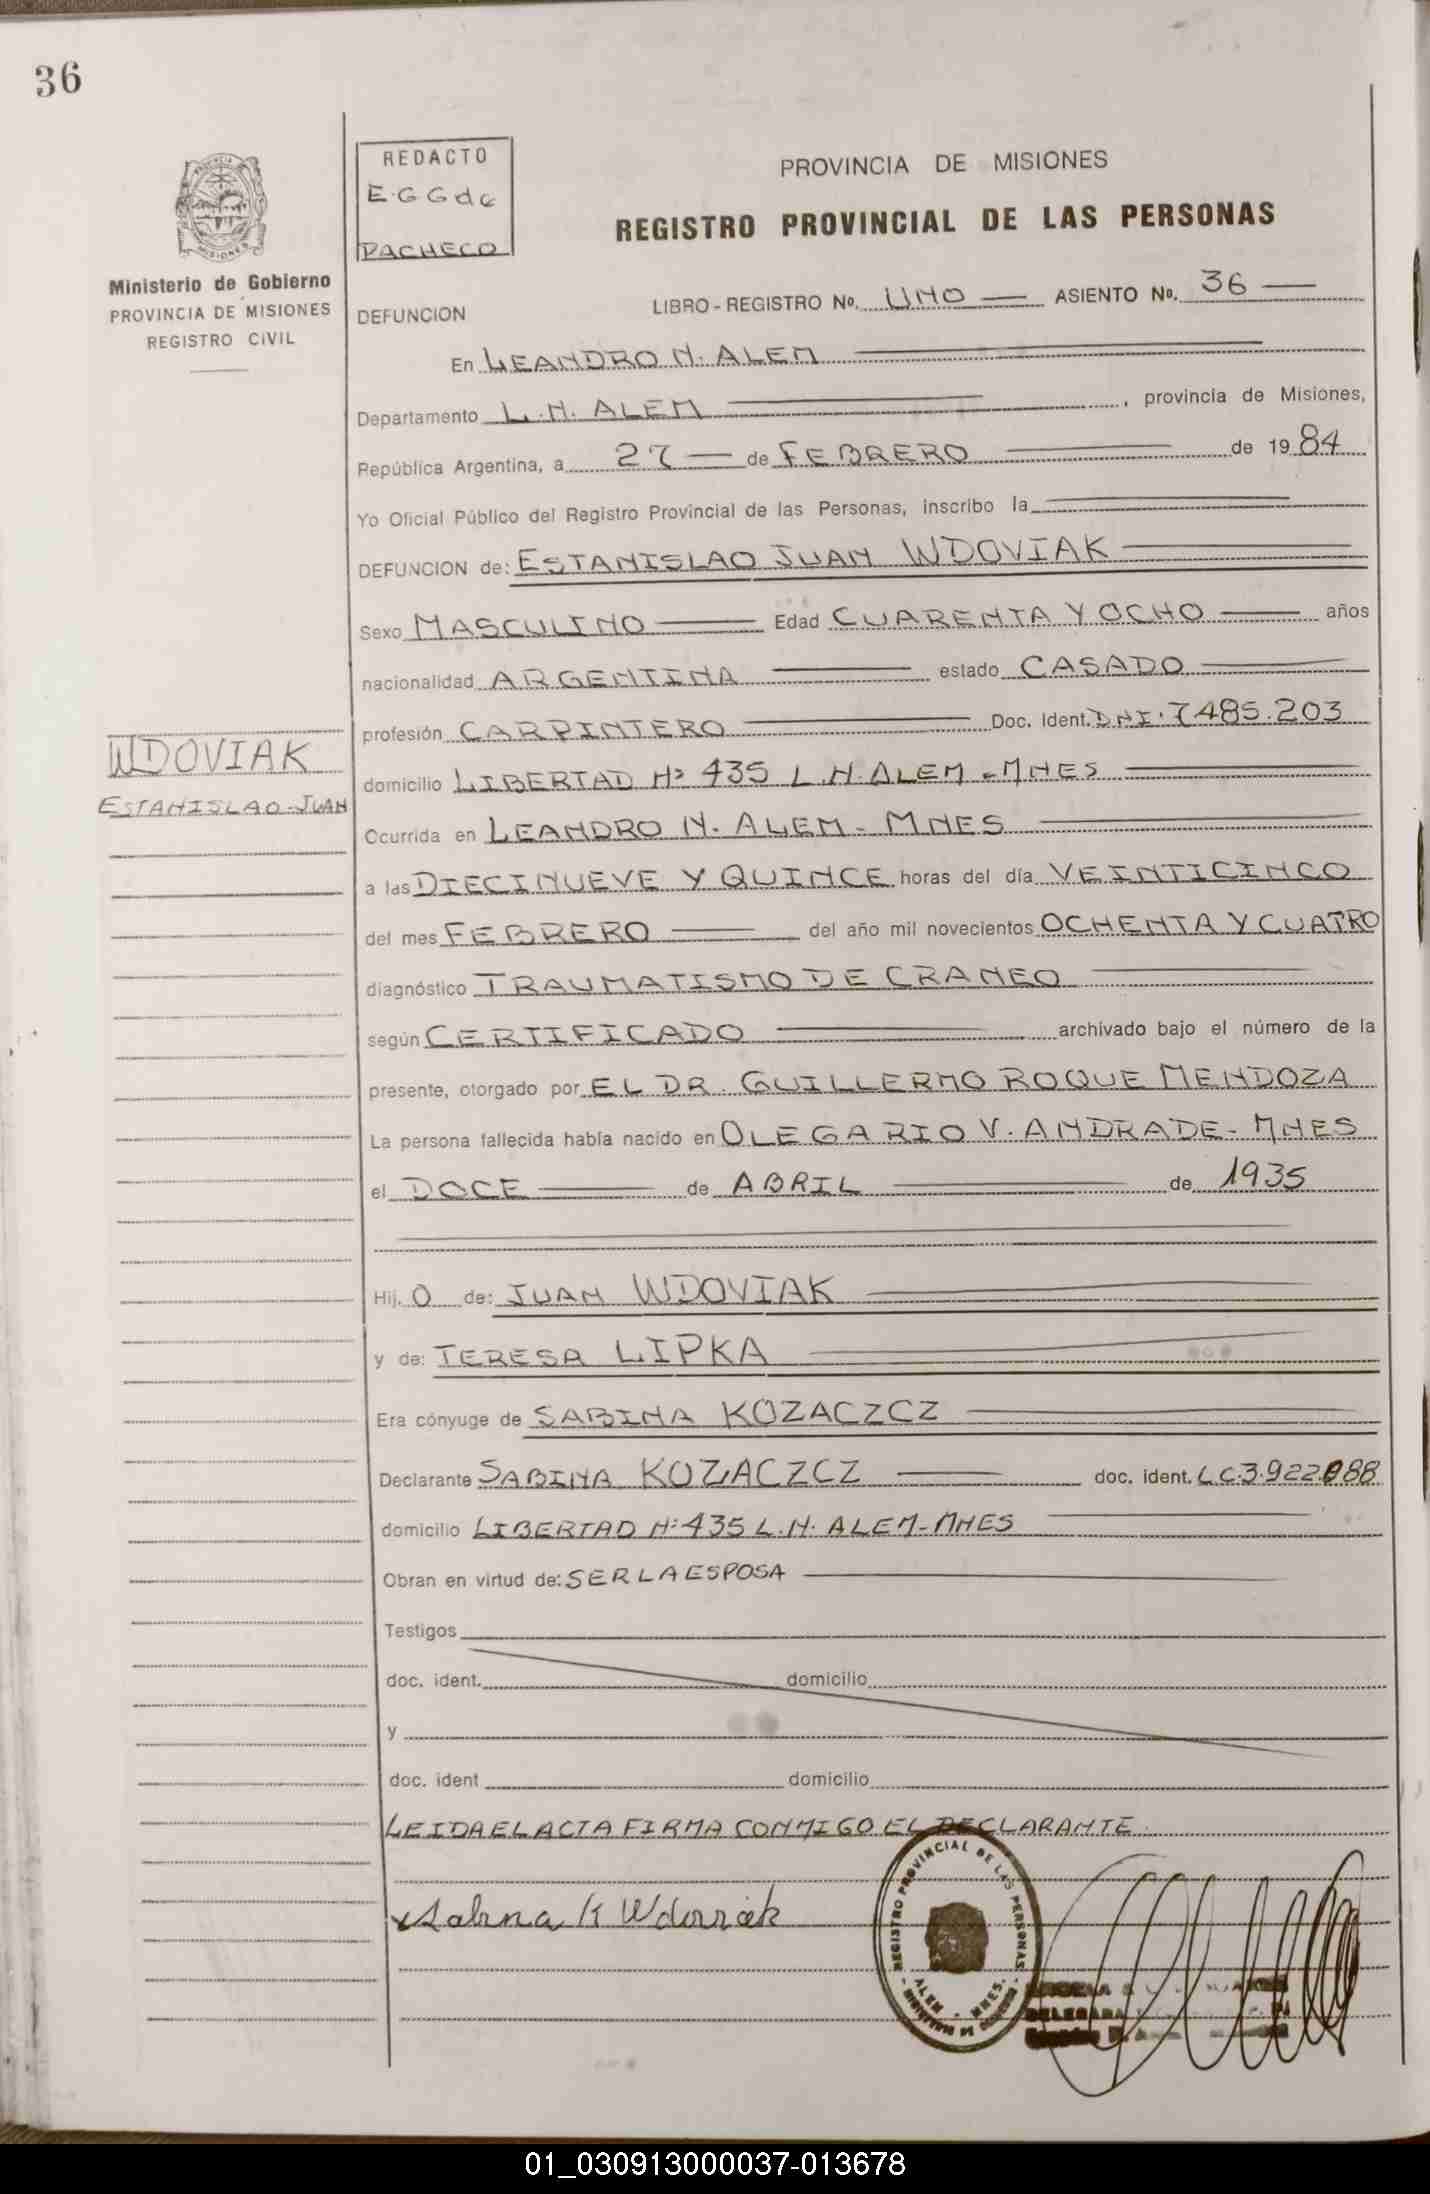 36
PROVINCIA DE MISIONES
Ministerio de Gobierno
PROVINCIA DE MISIONES
REGISTRO CIVIL
REDACTO
E.GGdG
PACHECO
PROVINCIA DE MISIONES
REGISTRO PROVINCIAL DE LAS PERSONAS
DEFUNCION LIBRO - REGISTRO No. UNO ASIENTO No. 36
En LEANDRO N. ALEM
Departamento L.N. ALEM, provincia de Misiones,
República Argentina, a 27 de FEBRERO de 1984
Yo Oficial Público del Registro Provincial de las Personas, inscribo la
DEFUNCION de: ESTANISLAO JUAN WDOVIAK
Sexo MASCULINO Edad CUARENTA Y OCHO años
nacionalidad ARGENTINA estado CASADO
profesión CARPINTERO Doc. Ident. DNI. 7485.203
WDOVIAK
ESTANISLAO-JUAN
domicilio LIBERTAD Nº 435 L.N. ALEM - MNES
Ocurrida en LEANDRO N. ALEM - MNES
a las DIECINUEVE Y QUINCE horas del día VEINTICINCO
del mes FEBRERO del año mil novecientos OCHENTA Y CUATRO
diagnóstico TRAUMATISMO DE CRANEO
según CERTIFICADO archivado bajo el número de la
presente, otorgado por EL DR. GUILLERMO ROQUE MENDOZA
La persona fallecida había nacido en OLEGARIO V. ANDRADE - MNES
el DOCE de ABRIL de 1935
Hij. O de: JUAN WDOVIAK
y de: TERESA LIPKA
Era cónyuge de SABINA KOZACZCZ
Declarante SABINA KOZACZCZ doc. ident. L C.3.922.088
domicilio LIBERTAD Nº 435 L.N. ALEM-MNES
Obran en virtud de: SER LA ESPOSA
Testigos
doc. ident. domicilio
y
doc. ident domicilio
LEIDA EL ACTA FIRMA CONMIGO EL DECLARANTE.
Sabina K Wdoviak
REGISTRO PROVINCIAL DE LAS PERSONAS
ALEM - MNES.
01_030913000037-013678